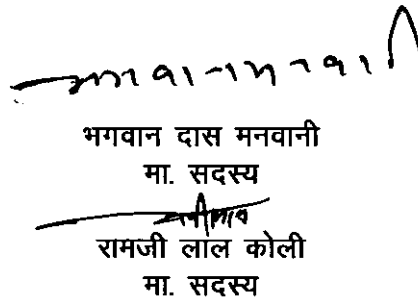 भगवान दास मनवानी
मा. सदस्य
रामजी लाल कोली
मा. सदस्य